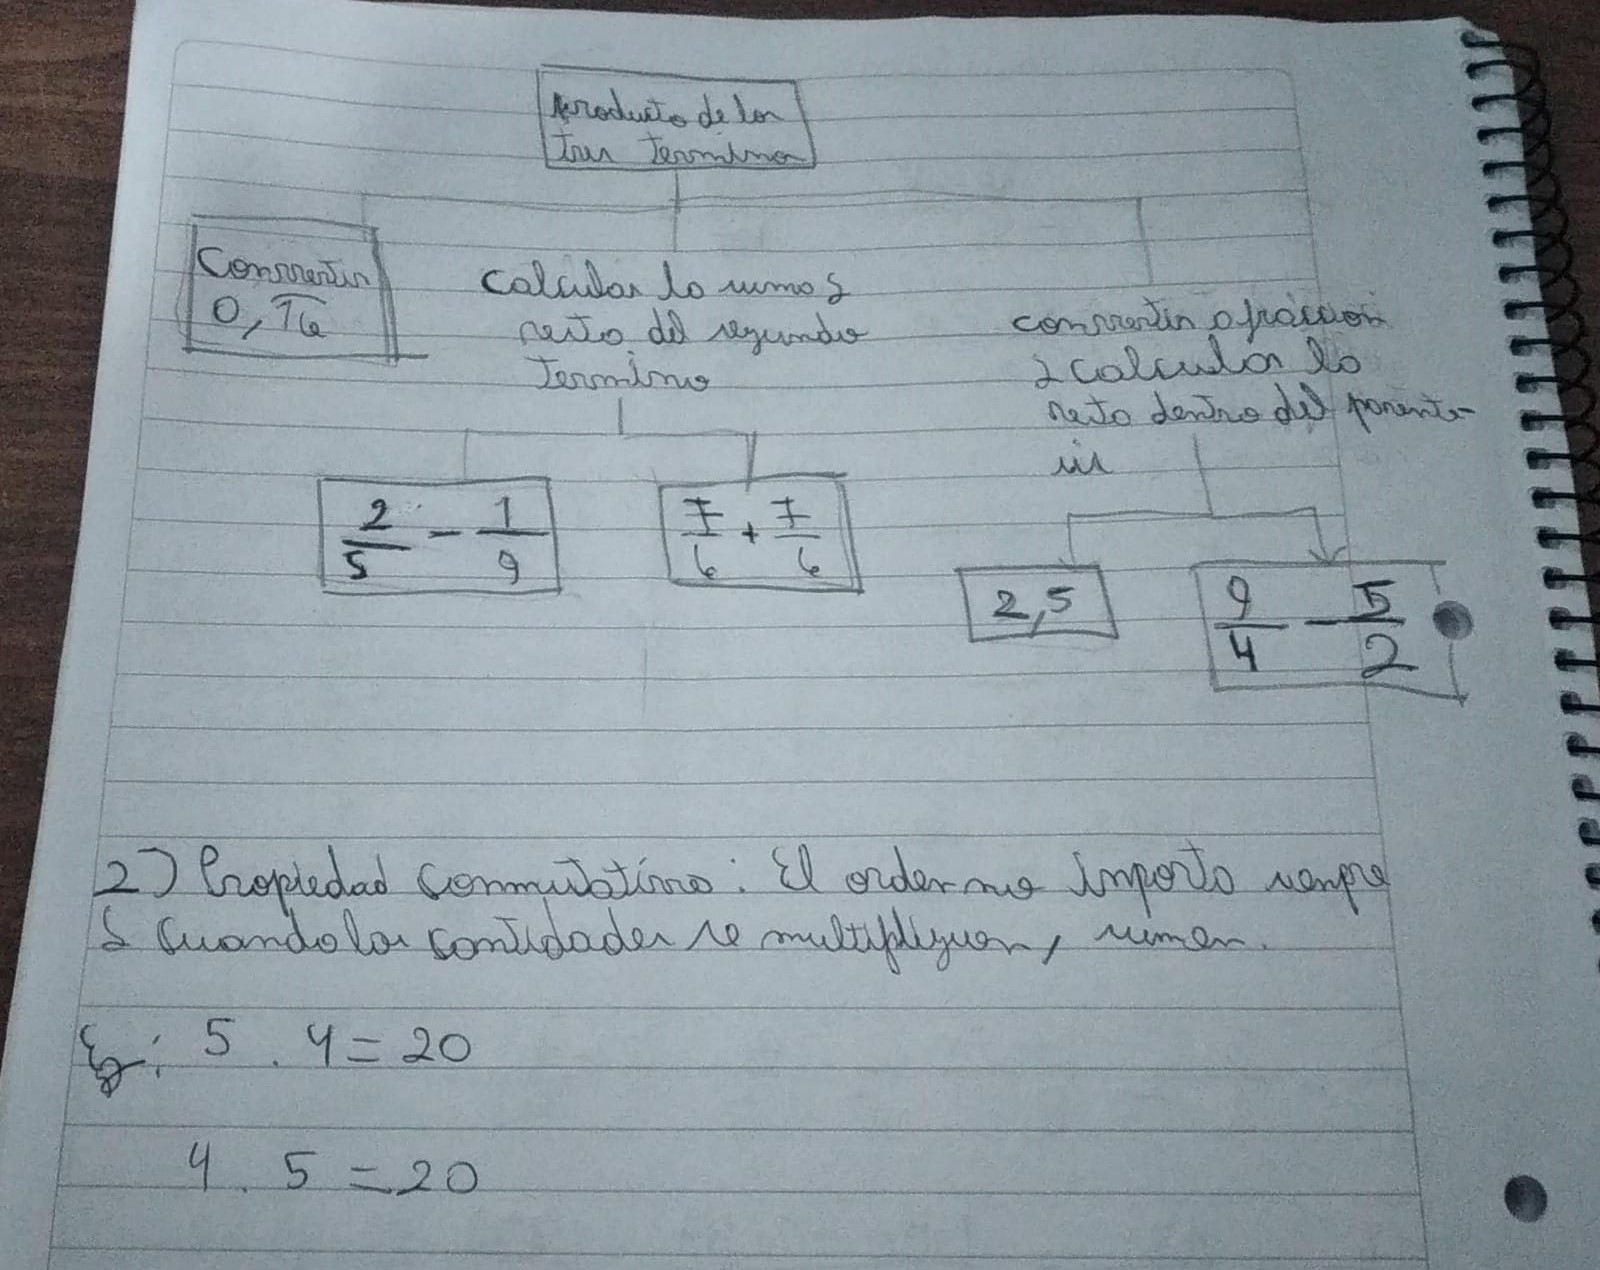 Producto de los
tres terminos
Convertir
0,16
Calcular la suma y
resta del segundo
termino
convertir a fraccion
y calcular la
resta dentro del parente-
sis
2/5 - 1/9
7/6 + 7/6
2,5
9/4 - 5/2
2) Propiedad Conmutativa: El orden no importa siempre
y cuando las cantidades se multipliquen, sumen.
Ej: 5 . 4 = 20
4 . 5 = 20